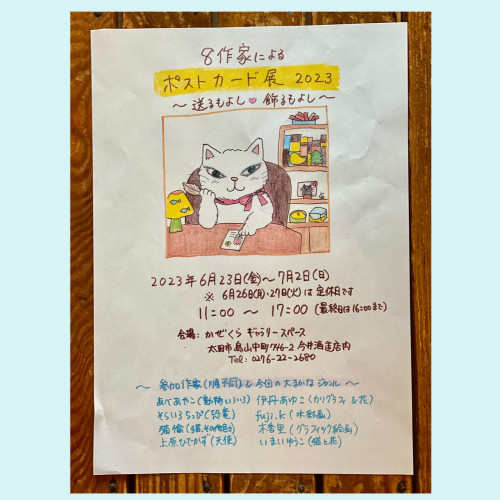 8作家による
ポストカード展 2023
～送るもよし♥飾るもよし～
2023年6月23日(金)～7月2日(日)
※ 6月26日(月)・27日(火)は定休日です
11:00 ～ 17:00 (最終日は16:00まで)
会場: かぜくら ギャラリースペース
太田市鳥山中町746-2 今井酒造店内
Tel: 0276-22-2680
～ 参加作家(順不同)&今回の大まかなジャンル ～
あべあやこ(動物いろいろ) 伊丹あゆこ(カリグラフィ&花)
そらいろちっぴ(恐竜) fuji.k(水彩画)
猫倫(猫、その他) 木杏里(グラフィック絵画)
上原ひでかず(天使) いまいゆうこ(猫と花)